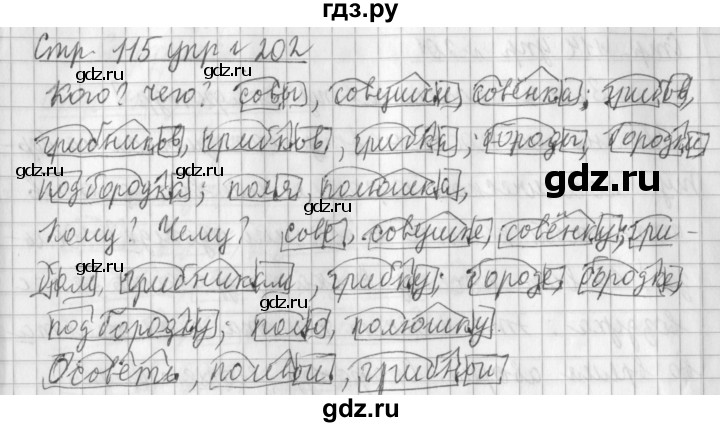 гдз.ру
Стр. 115 упр. 202
gdz.ru gdz.ru
Кого? Чего? совы, совушки, совёнка; грибов,
gdz.ru
грибников, грибков, грибка; бороды, бородки
подбородка; поля, полюшка,
gdz.ru gdz.ru
Кому? Чему? сове, совушке, совёнку; гри-
gdz.ru
бам, грибникам, грибку; бороде, бородке
gdz.ru gdz.ru
подбородку; полю, полюшку.
gdz.ru
Осоветь, полевой, грибной.
gdz.ru gdz.ru
gdz.ru